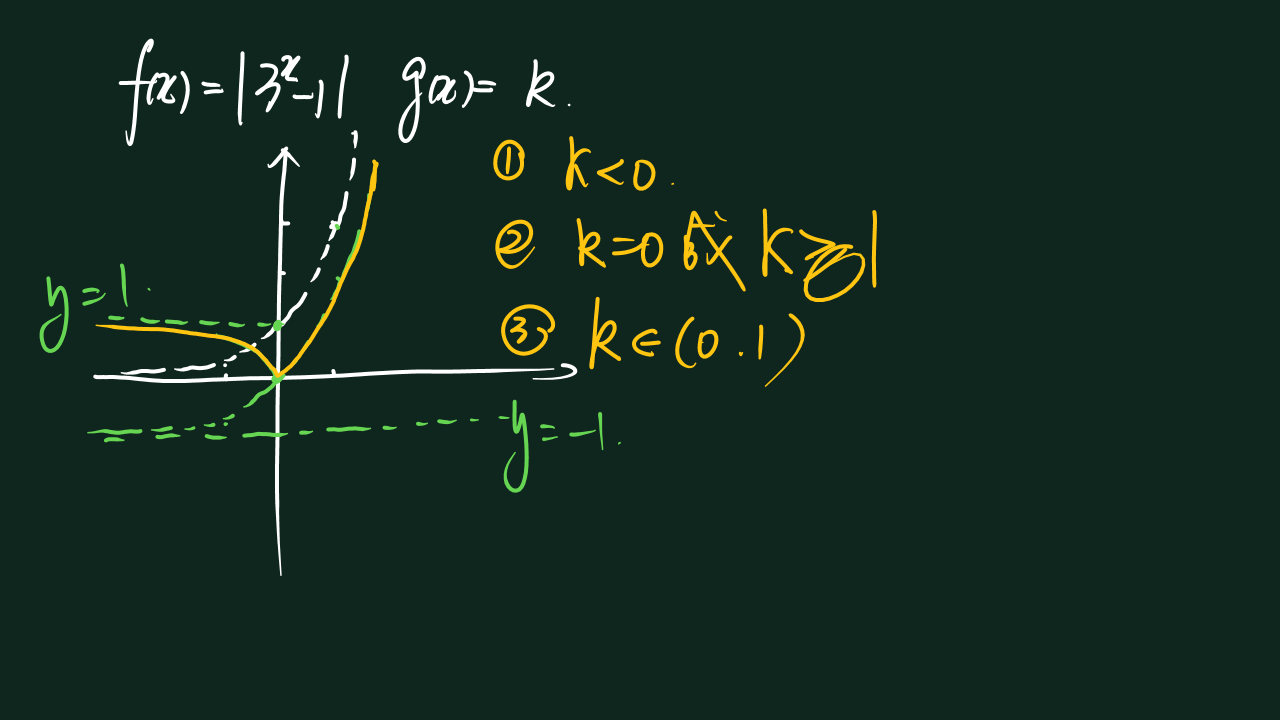 f(x)=|3ˣ-1| g(x)= k.
① k<0.
② k=0 或 k⩾1
y=1.
③ k∈(0.1)
y=-1.